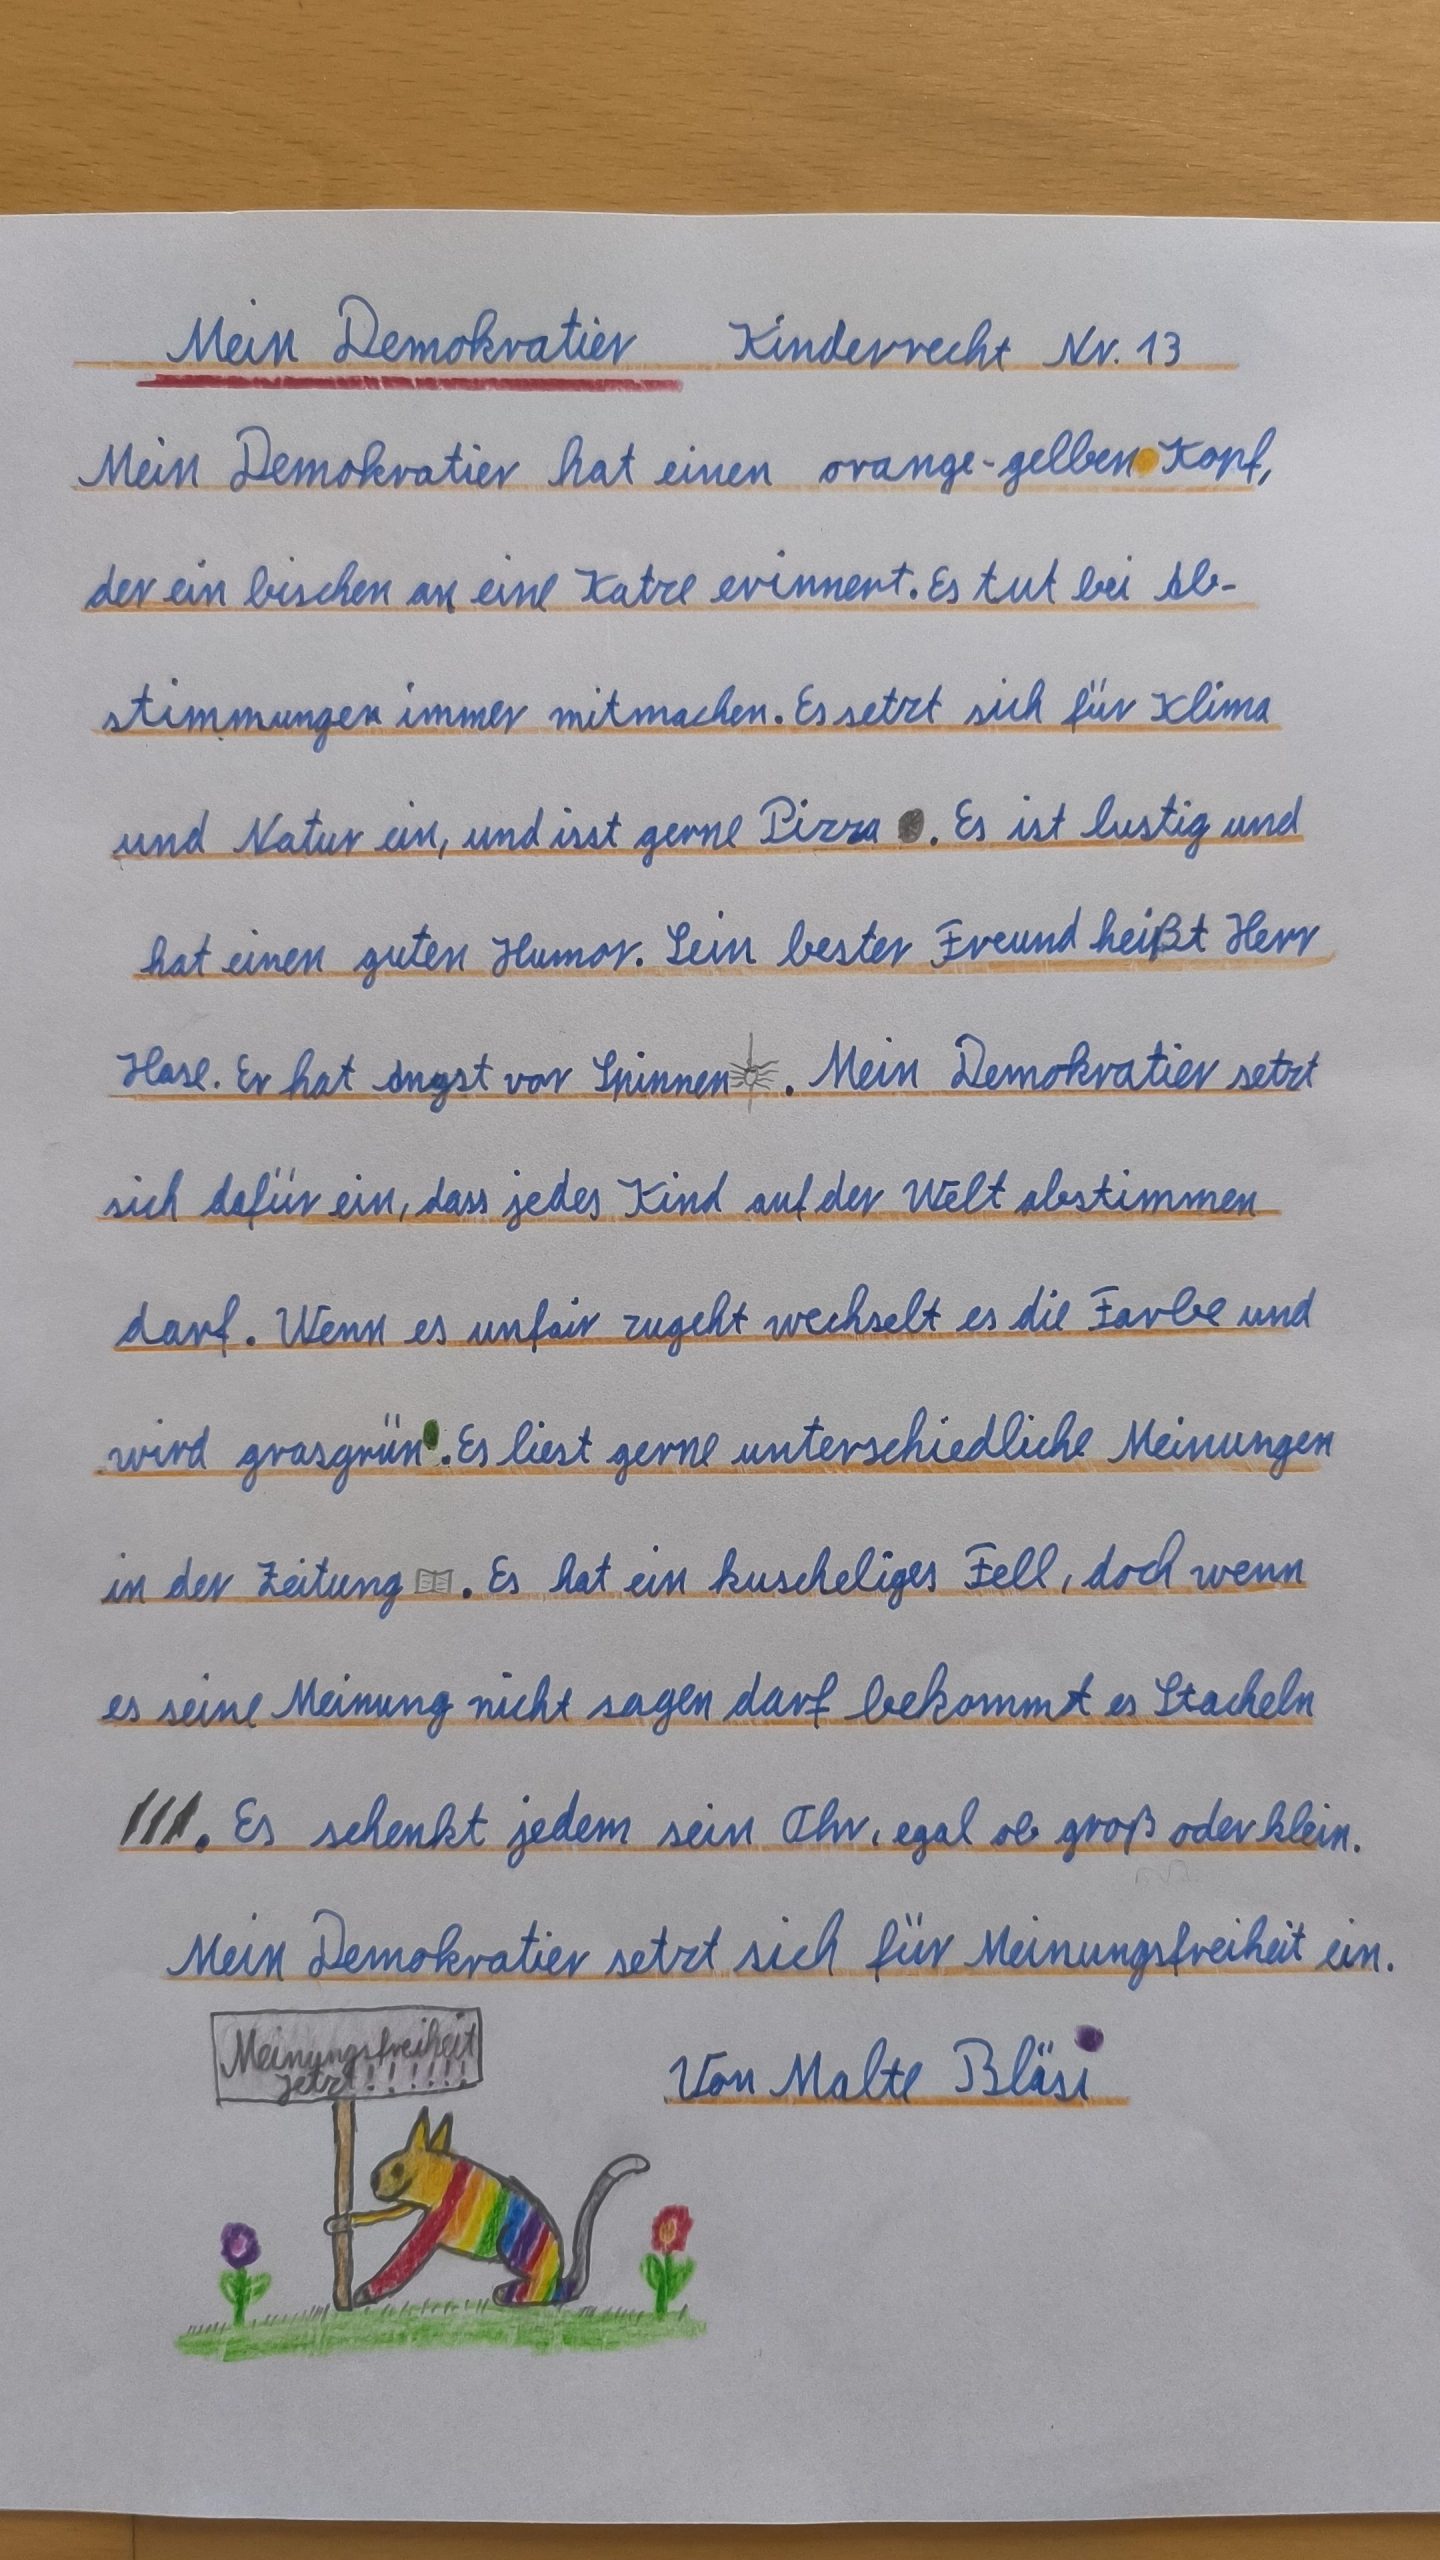 Mein Demokratier Kinderrecht Nr. 13
Mein Demokratier hat einen orange-gelben Kopf,
der ein bischen an eine Katze erinnert. Es tut bei Ab-
stimmungen immer mitmachen. Es setzt sich für Klima
und Natur ein, und isst gerne Pizza. Es ist lustig und
hat einen guten Humor. Sein bester Freund heißt Herr
Hase. Er hat Angst vor Spinnen. Mein Demokratier setzt
sich dafür ein, dass jedes Kind auf der Welt abstimmen
darf. Wenn es unfair zugeht wechselt es die Farbe und
wird grasgrün. Es liest gerne unterschiedliche Meinungen
in der Zeitung. Es hat ein kuscheliges Fell, doch wenn
es seine Meinung nicht sagen darf bekommt es Stacheln
. Es schenkt jedem sein Ohr, egal ob groß oder klein.
Mein Demokratier setzt sich für Meinungsfreiheit ein.
Meinungsfreiheit
jetzt!!!!!!!
Von Malte Bläsi